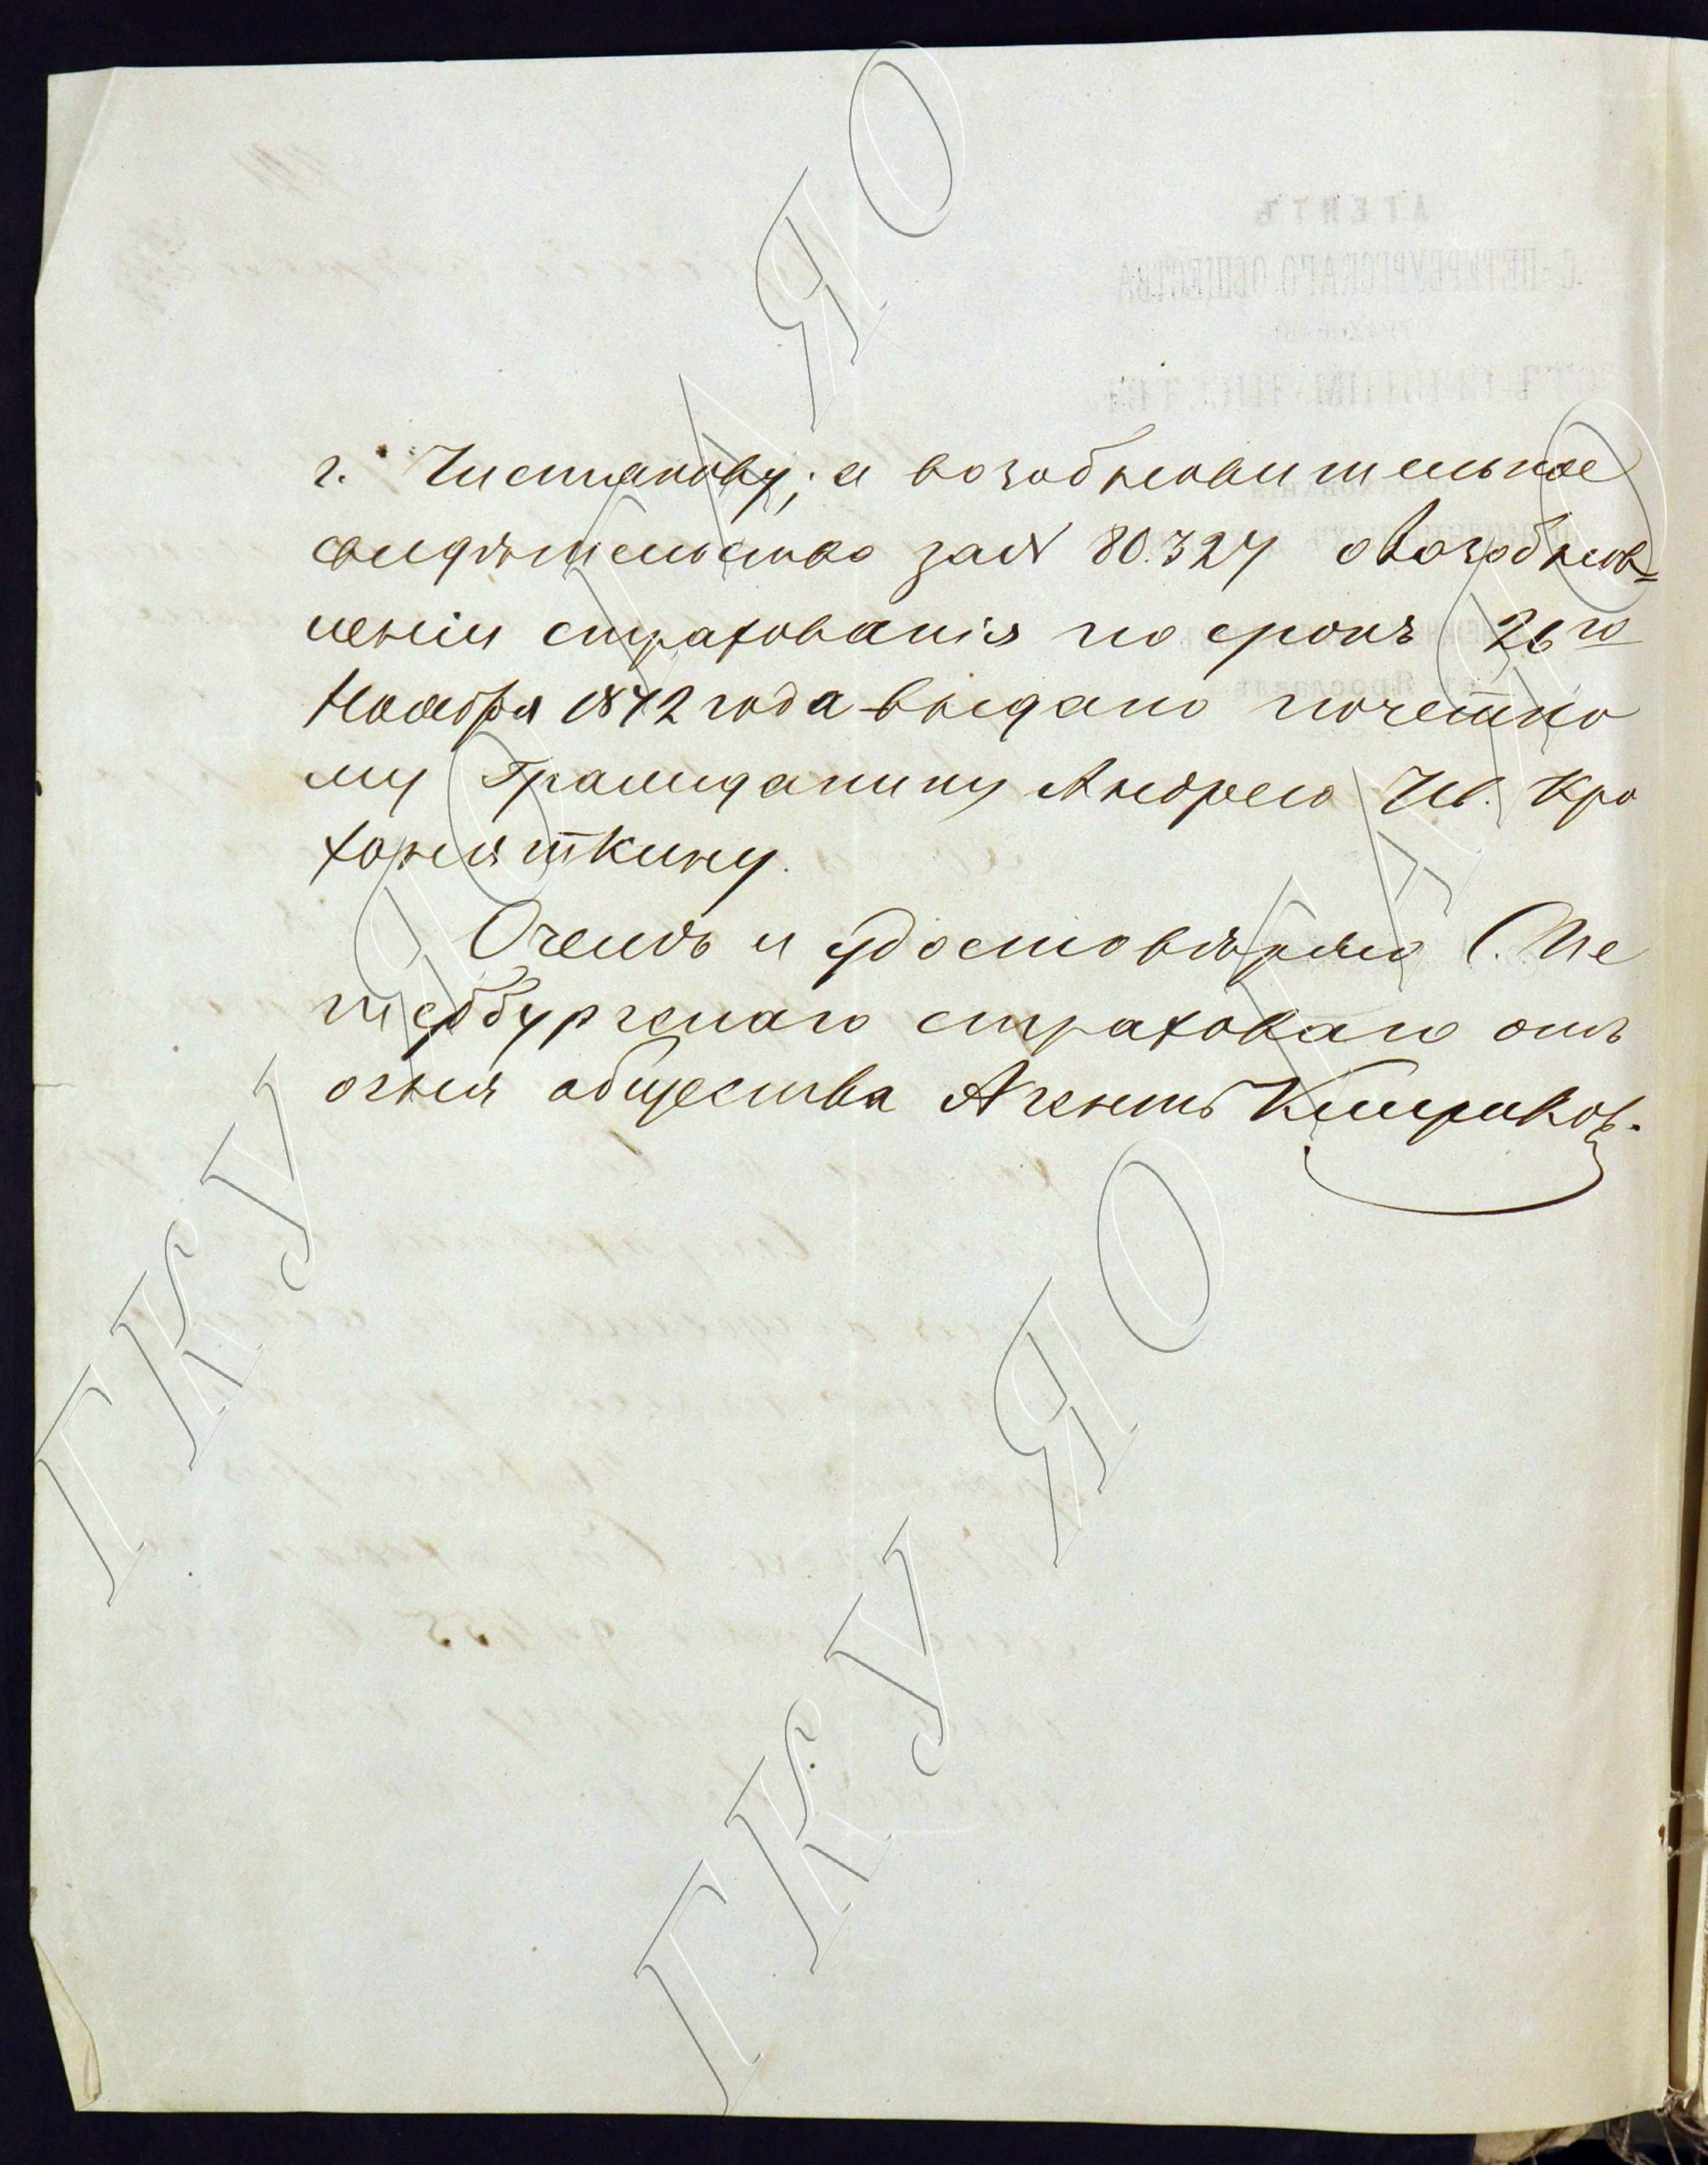 г. Чистякову; а возобновительное
свидѣтельство за № 80.327 о возобнов=
леніи страхованія по срокъ 26го
Ноября 1872 года выдано почетно
му Гражданину Андрею Ив. Кро
хоняткину.
Очемъ и удостовѣряю С. Пе
тербургскаго страховаго отъ
огня общества Агентъ
ГКУ ЯО ГАЯО
ГКУ ЯО ГАЯО